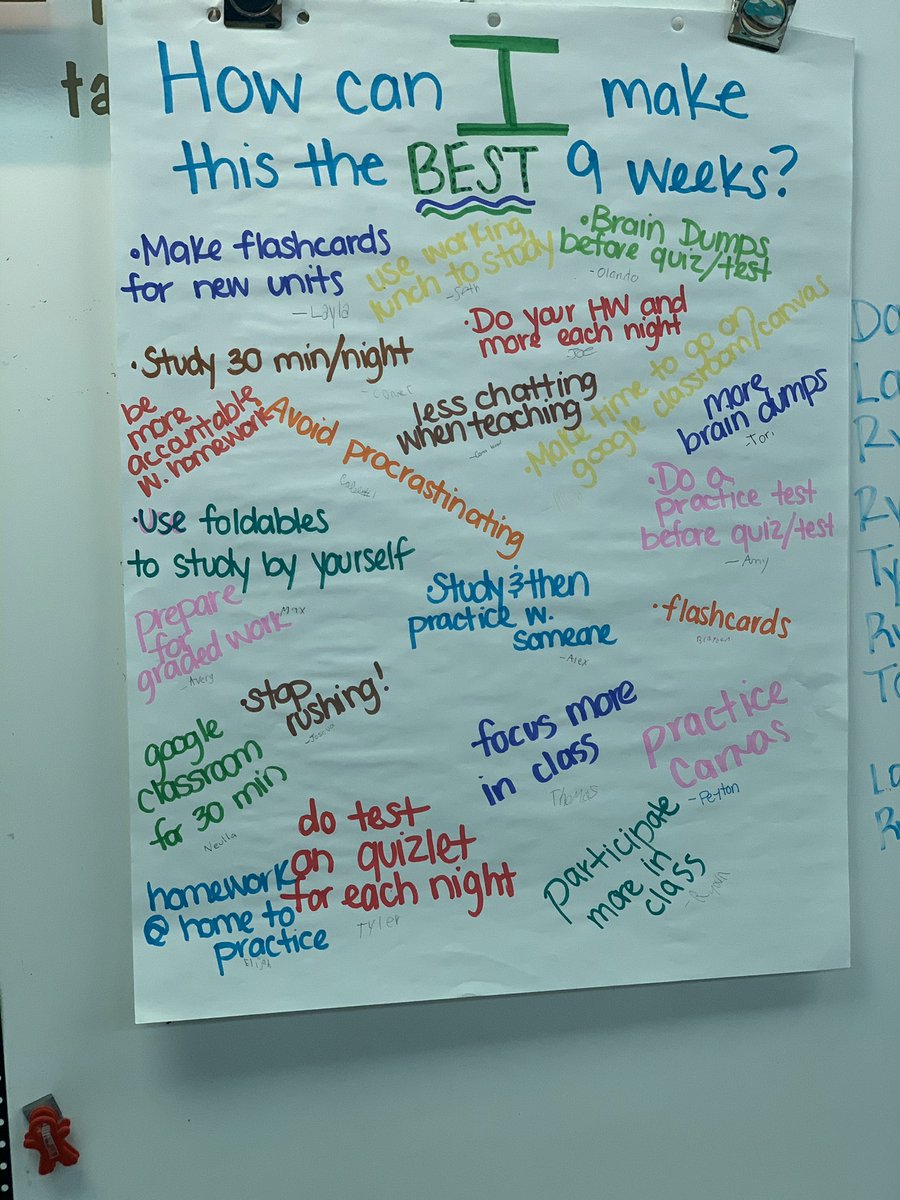 ta
How can I make
this the BEST 9 weeks?
•Make flashcards
for new units
—Layla
use working
lunch to study
-Seth
•Brain Dumps
before quiz/test
-Olando
•Do your HW and
more each night
-Joe
•Study 30 min/night
be
more
accountable
w. homework
Avoid procrastinating
less chatting
when teaching
•Make time to go on
google classroom/canvas
more
brain dumps
-Tori
•Do a
practice test
before quiz/test
—Amy
•Use foldables
to study by yourself
Max
•Study & then
practice w.
someone
-Alex
•flashcards
prepare
for
graded work
-Avery
•stop
rushing!
-Joshua
google
classroom
for 30 min
focus more
in class
Thomas
practice
canvas
-Peyton
do test
on quizlet
for each night
Tyler
participate
more in
class
homework
@ home to
practice
Elijah